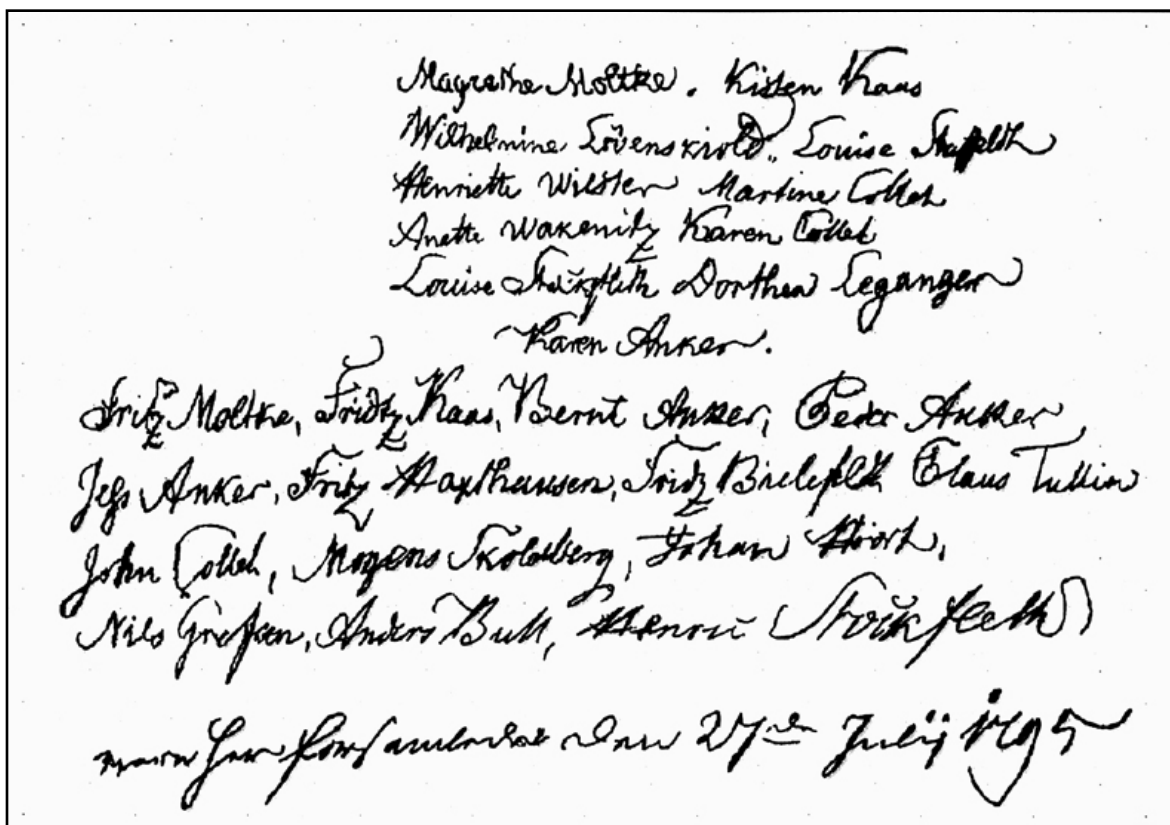 Magrethe Moltke. Kisten Kaas
Wilhelmine Lövenskiold., Louise
Henriette Wilster Martine Collet
Anette Wakenitz Karen Collet
Louise Stockfleth Dorthea Leganger
Karen Anker.
Fritz Moltke, Fridtz Kaas, Bernt Anker, Peder Anker,
Jess Anker, Fritz Haxthausen, Fridz Bielefeldt Claus Tullin
John Collet, Mogens Skoldberg, Johan Hiort,
Nils Grefsen, Anders Bull, Henric Stockfleth
vare her forsamlede den 27de Julij 1795